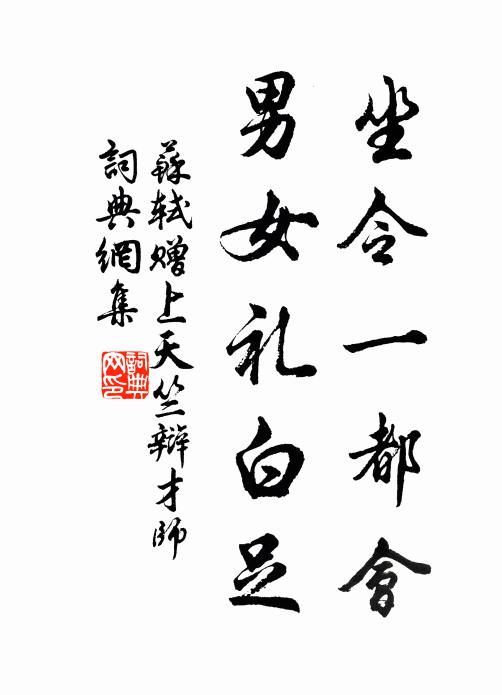 坐令一都會
男女礼白足
蘇軾贈上天竺辯才師
詞典網集
詞典網印